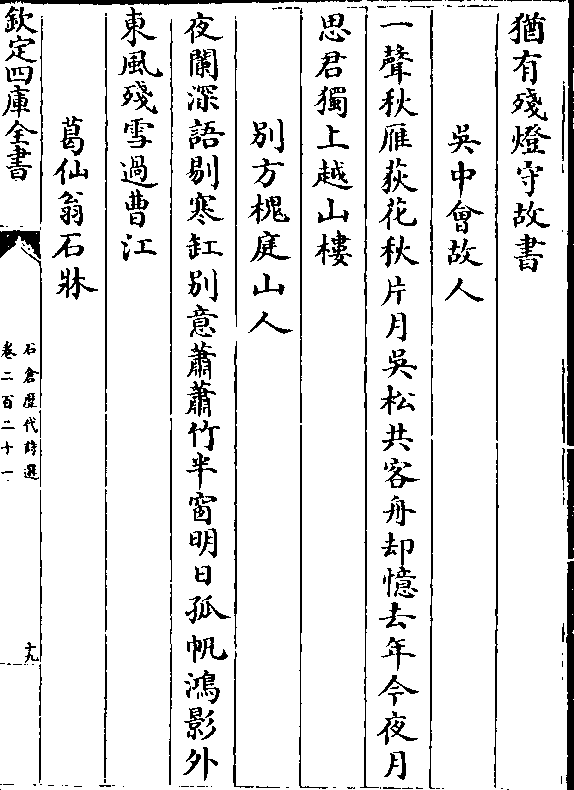 猶有殘燈守故書
吳中會故人
一聲秋雁荻花秋片月吳松共客舟却憶去年今夜月
思君獨上越山樓
別方槐庭山人
夜闌深語剔寒缸別意蕭蕭竹半窗明日孤帆鴻影外
東風殘雪過曹江
葛仙翁石牀
欽定四庫全書
石倉歷代詩選
卷二百二十一
十九